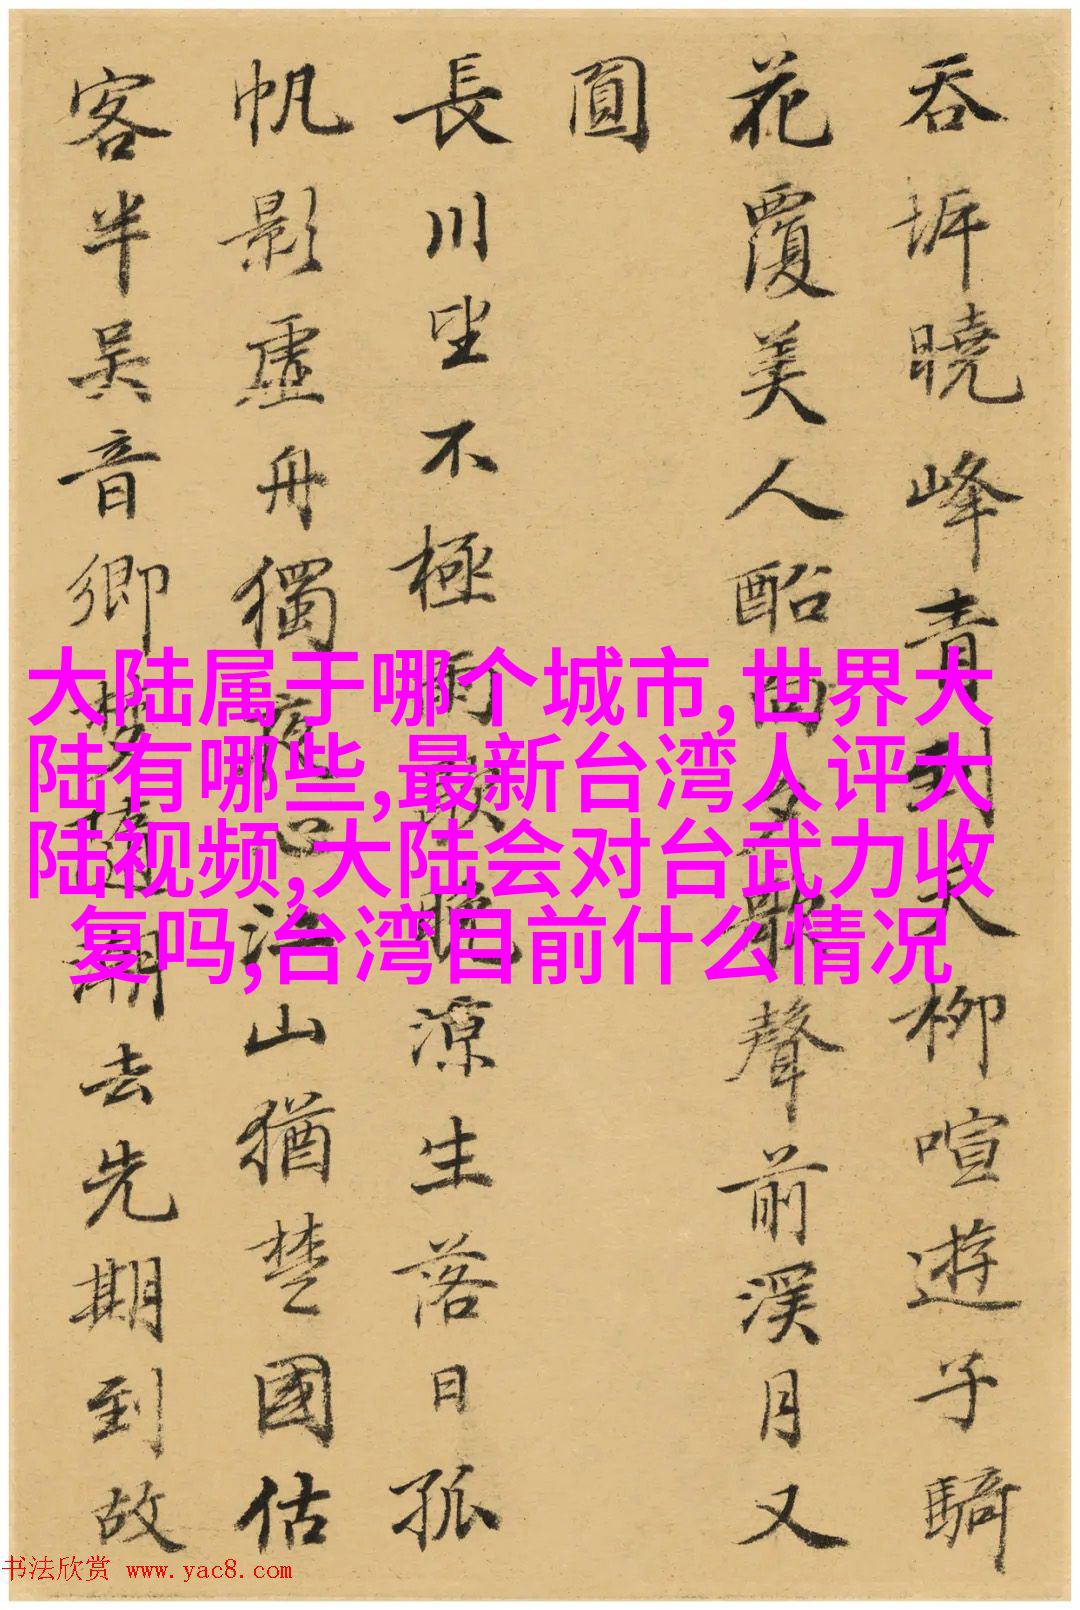 吞坼曉峰青到天柳喧遊子騎
花覆美人船夕歌聲前溪月又
圓
長川坐不極雨歇晚涼生落日孤
帆影虛舟獨心治山猶楚國估
客半吳音鄉夢隨潮去先期到故
大陆属于哪个城市,世界大
陆有哪些,最新台湾人评大
陆视频,大陆会对台武力收
复吗,台湾目前什么情况
书法欣赏 www.yac8.com